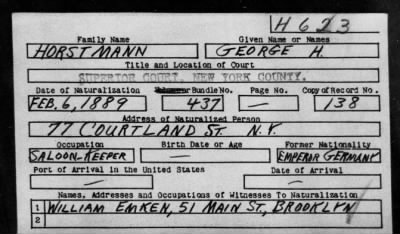 H 623
Family Name Given Name or Names
HORSTMANN GEORGE H.
Title and Location of Court
SUPERIOR COURT, NEW YORK COUNTY.
Date of Naturalization Bundle No. Page No. Copy of Record No.
FEB. 6, 1889 437 — 138
Address of Naturalized Person
77 C'OURTLAND ST. N.Y.
Occupation Birth Date or Age Former Nationality
SALOON-KEEPER — EMPEROR GERMANY
Port of Arrival in the United States Date of Arrival
— —
Names, Addresses and Occupations of Witnesses To Naturalization
1 WILLIAM EMKEN, 51 MAIN ST, BROOKLYN
2